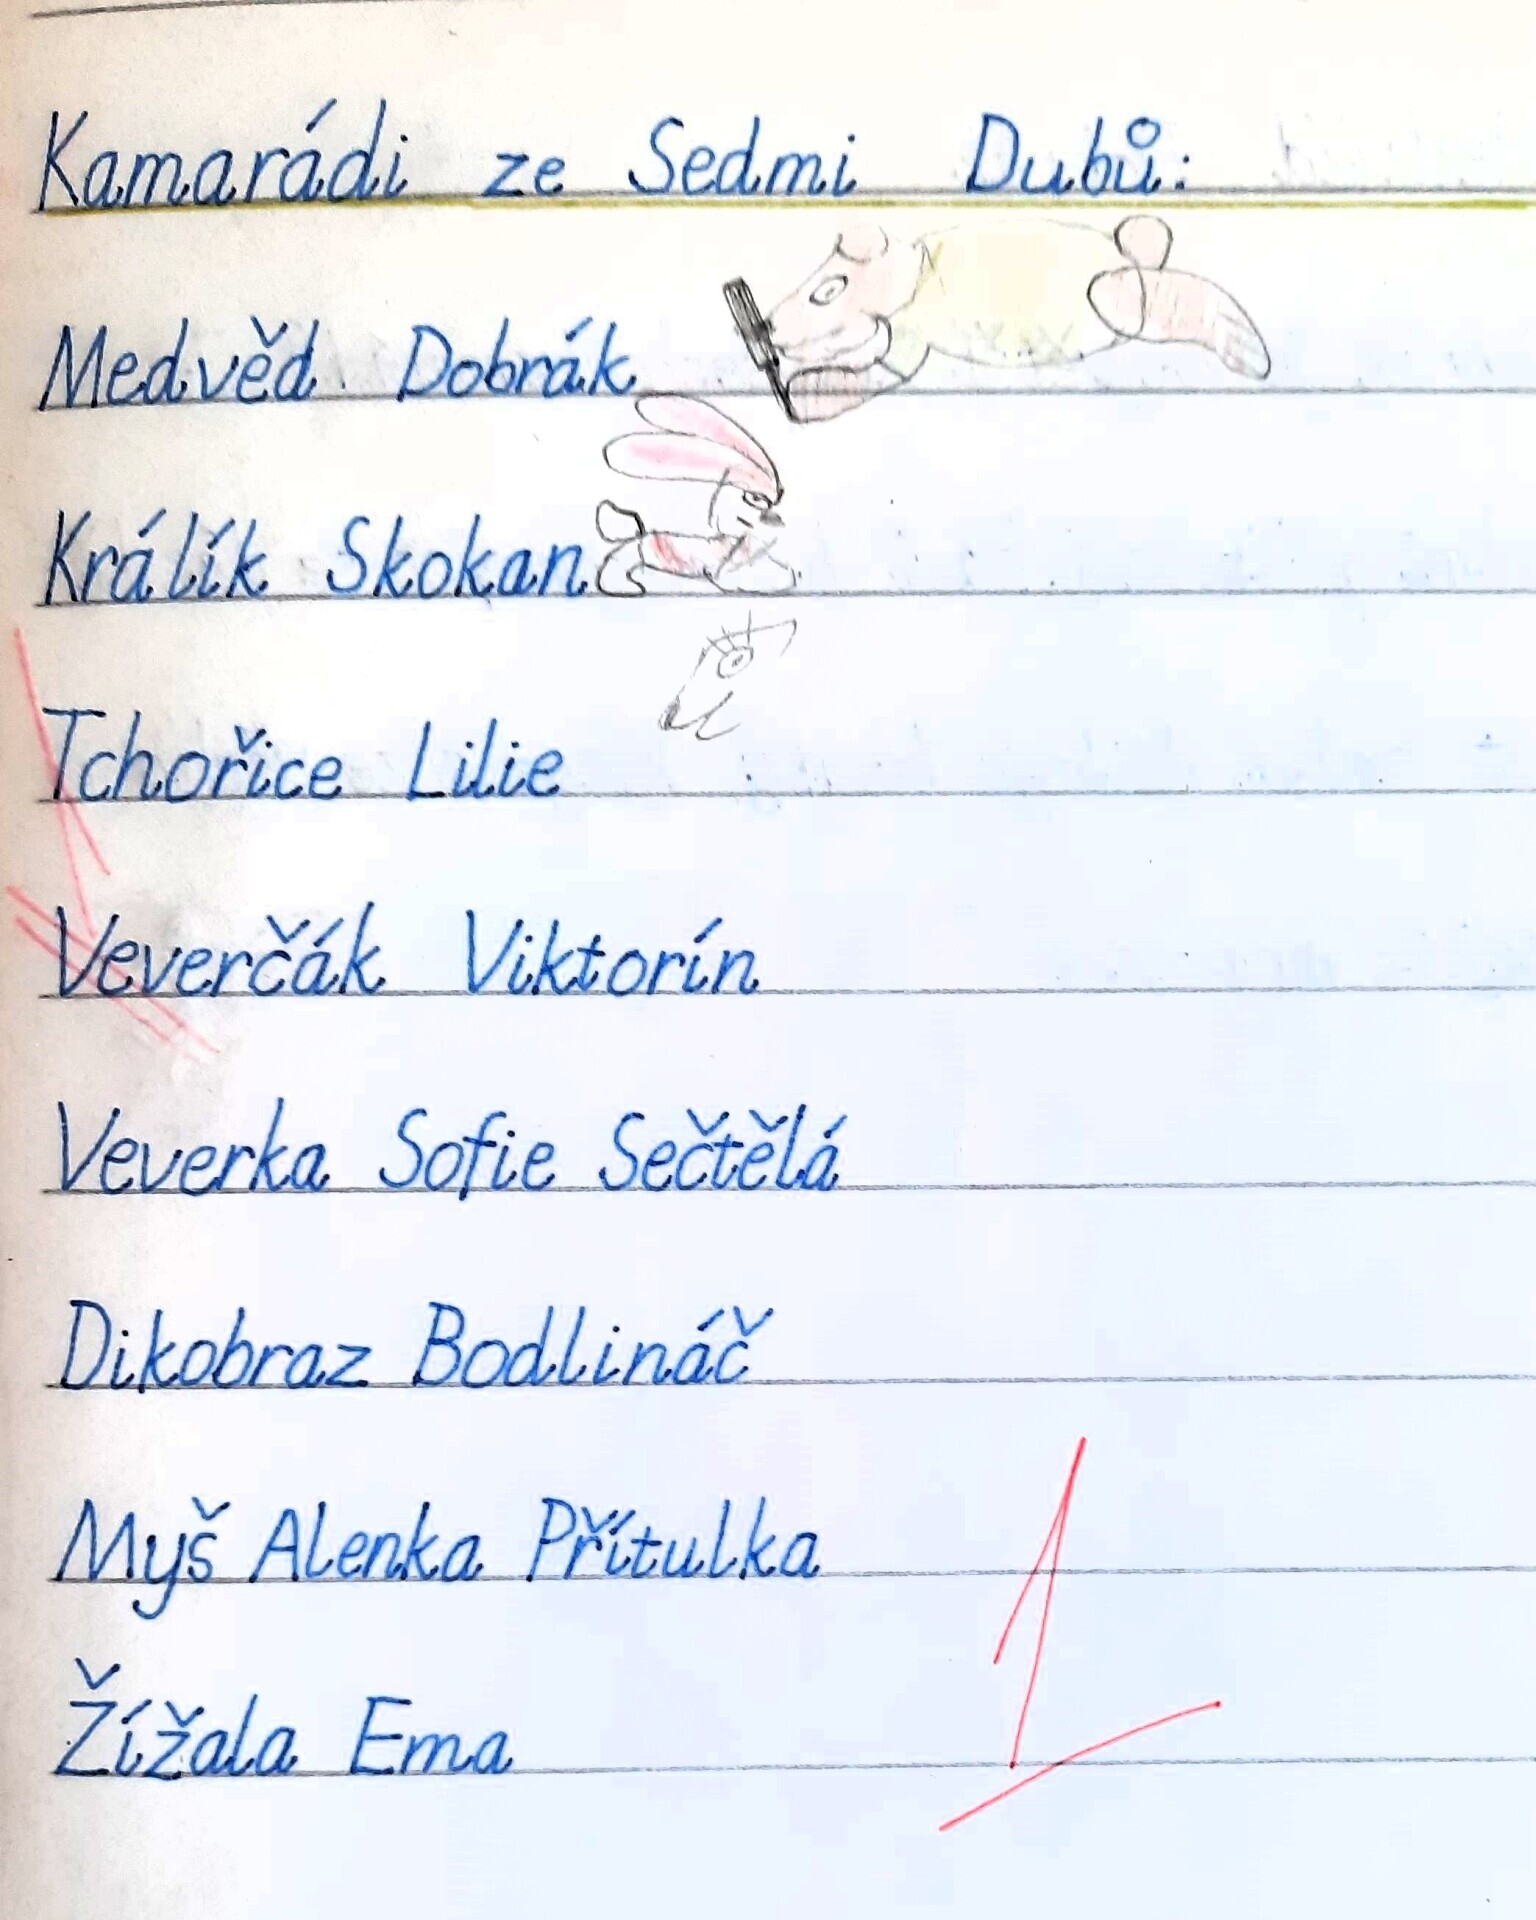 Kamarádi ze Sedmi Dubů:
Medvěd Dobrák
Králík Skokan
Tchořice Lilie
Veverčák Viktorín
Veverka Sofie Sečtělá
Dikobraz Bodlináč
Myš Alenka Přítulka
Žížala Ema
1